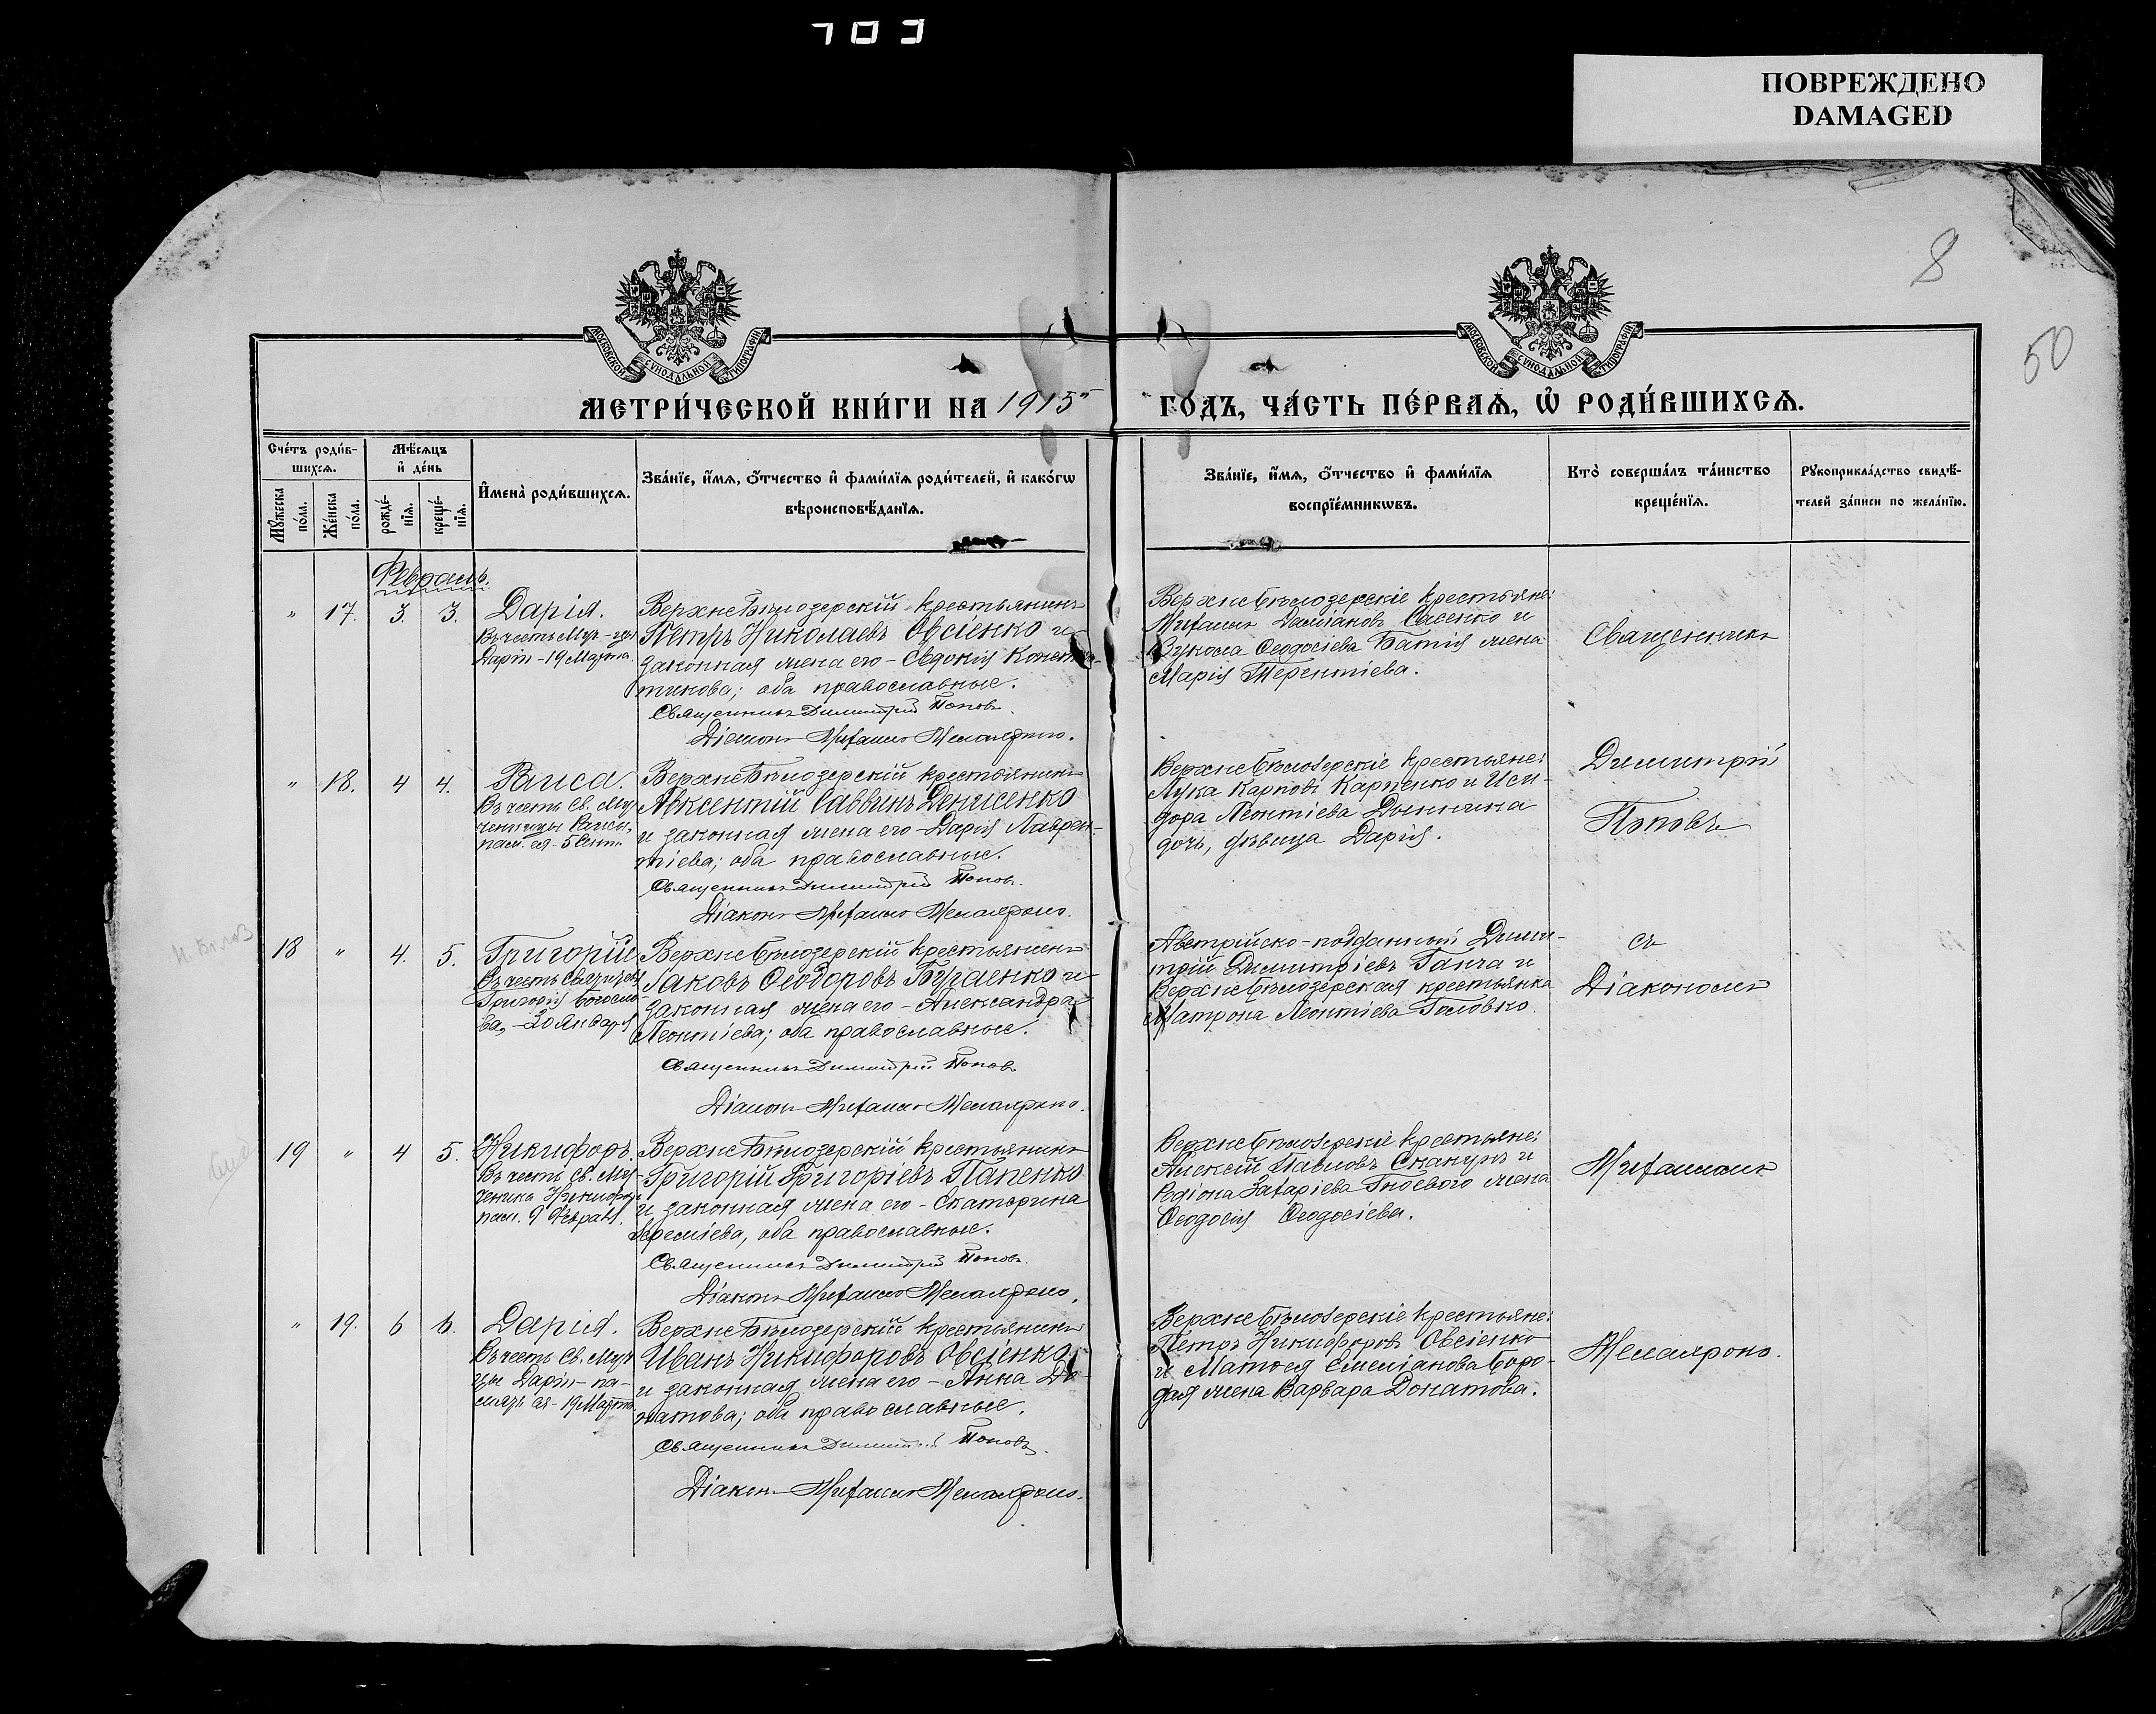 ПОВРЕЖДЕНО
DAMAGED
8
50
МОСКОВСКОЙ СѴНОДАЛЬНОЙ ТИПОГРАФІИ
МОСКОВСКОЙ СѴНОДАЛЬНОЙ ТИПОГРАФІИ
МЕТРИ́ЧЕСКОЙ КНИ́ГИ НА 1915
ГО́ДЪ, ЧА́СТЬ ПЕ́РВАѦ, Ѡ҆ РОДИ́ВШИХСѦ.
Сче́тъ роди́в-
шихсѧ.
Мѣ́сѧцъ
и҆ де́нь
Мꙋ́жеска
по́ла.
Же́нска
по́ла.
рожде́-
нїѧ.
креще́-
нїѧ.
И҆мена̀ роди́вшихсѧ.
Зва́нїе, и҆́мѧ, ѻ҆́тчество и҆ фами́лїѧ роди́телей, и҆ како́гѡ
вѣроисповѣ́данїѧ.
Зва́нїе, и҆́мѧ, ѻ҆́тчество и҆ фами́лїѧ
воспрїе́мникѡвъ.
Кто̀ соверша́лъ та́инство
креще́нїѧ.
Рꙋкоприкла́дство свидѣ́-
телей за́писи по жела́нїю.
Февраль.
" 17. 3. 3. Дарія.
Въ честь Муч-цы
Даріи - 19 Марта.
Верхнебѣлозерскій крестьянинъ
Петръ Николаевъ Овсіенко и
законная жена его - Евдокія Констан-
тинова; оба православные.
Священникъ Димитрій Поповъ.
Діаконъ
Верхнебѣлозерскіе крестьяне:
Даміановъ и
Ѳеодосіева жена
Марія Терентіева.
Священникъ
" 18. 4 4. Раиса.
Въ честь Св. Му-
ченицы Раисы,
пам. ея - 5 Сент.
Верхнебѣлозерскій крестьянинъ
Авксентій Саввинъ Денисенко
и законная жена его - Дарія Лаврен-
тіева; оба православные.
Священникъ Димитрій Поповъ.
Діаконъ
Верхнебѣлозерскіе крестьяне:
Лука Карповъ Карпенко и Иси-
дора Леонтіева
дочь, дѣвица Дарія.
Димитрій
Поповъ
18 " 4. 5. Григорій
Въ честь
Григорія Богосло-
ва, - 30 Января
Верхнебѣлозерскій крестьянинъ
Іаковъ Ѳеодоровъ и
законная жена его - Александра
Леонтіева; оба православные.
Священникъ Димитрій Поповъ
Діаконъ
Австрійско-подданный Дими-
трій Димитріевъ Ганча и
Верхнебѣлозерская крестьянка
Матрона Леонтіева Головко.
съ
Діакономъ
19 " 4 5. Никифоръ.
Въ честь Св. Му-
ченика Никифора
пам. 9 Февраля.
Верхнебѣлозерскій крестьянинъ
Григорій Григоріевъ Папенко
и законная жена его - Екатерина
Ефреміева, оба православные.
Священникъ Димитрій Поповъ.
Діаконъ
Верхнебѣлозерскіе крестьяне:
Алексій Павловъ Скакунъ и
Родіона Захаріева Гноевого жена
Ѳеодосія Ѳеодосіева.
" 19. 6 6. Дарія.
Въ честь Св. Муч-
цы Даріи - па-
мять ея - 19 Марта.
Верхнебѣлозерскій крестьянинъ
Иванъ Никифоровъ Овсіенко
и законная жена его - Анна До-
натова; оба православные.
Священникъ Димитрій Поповъ.
Діаконъ
Верхнебѣлозерскіе крестьяне:
Петръ Никифоровъ Овсіенко
и Матѳея Емеліанова Боро-
дая жена Варвара Донатова.